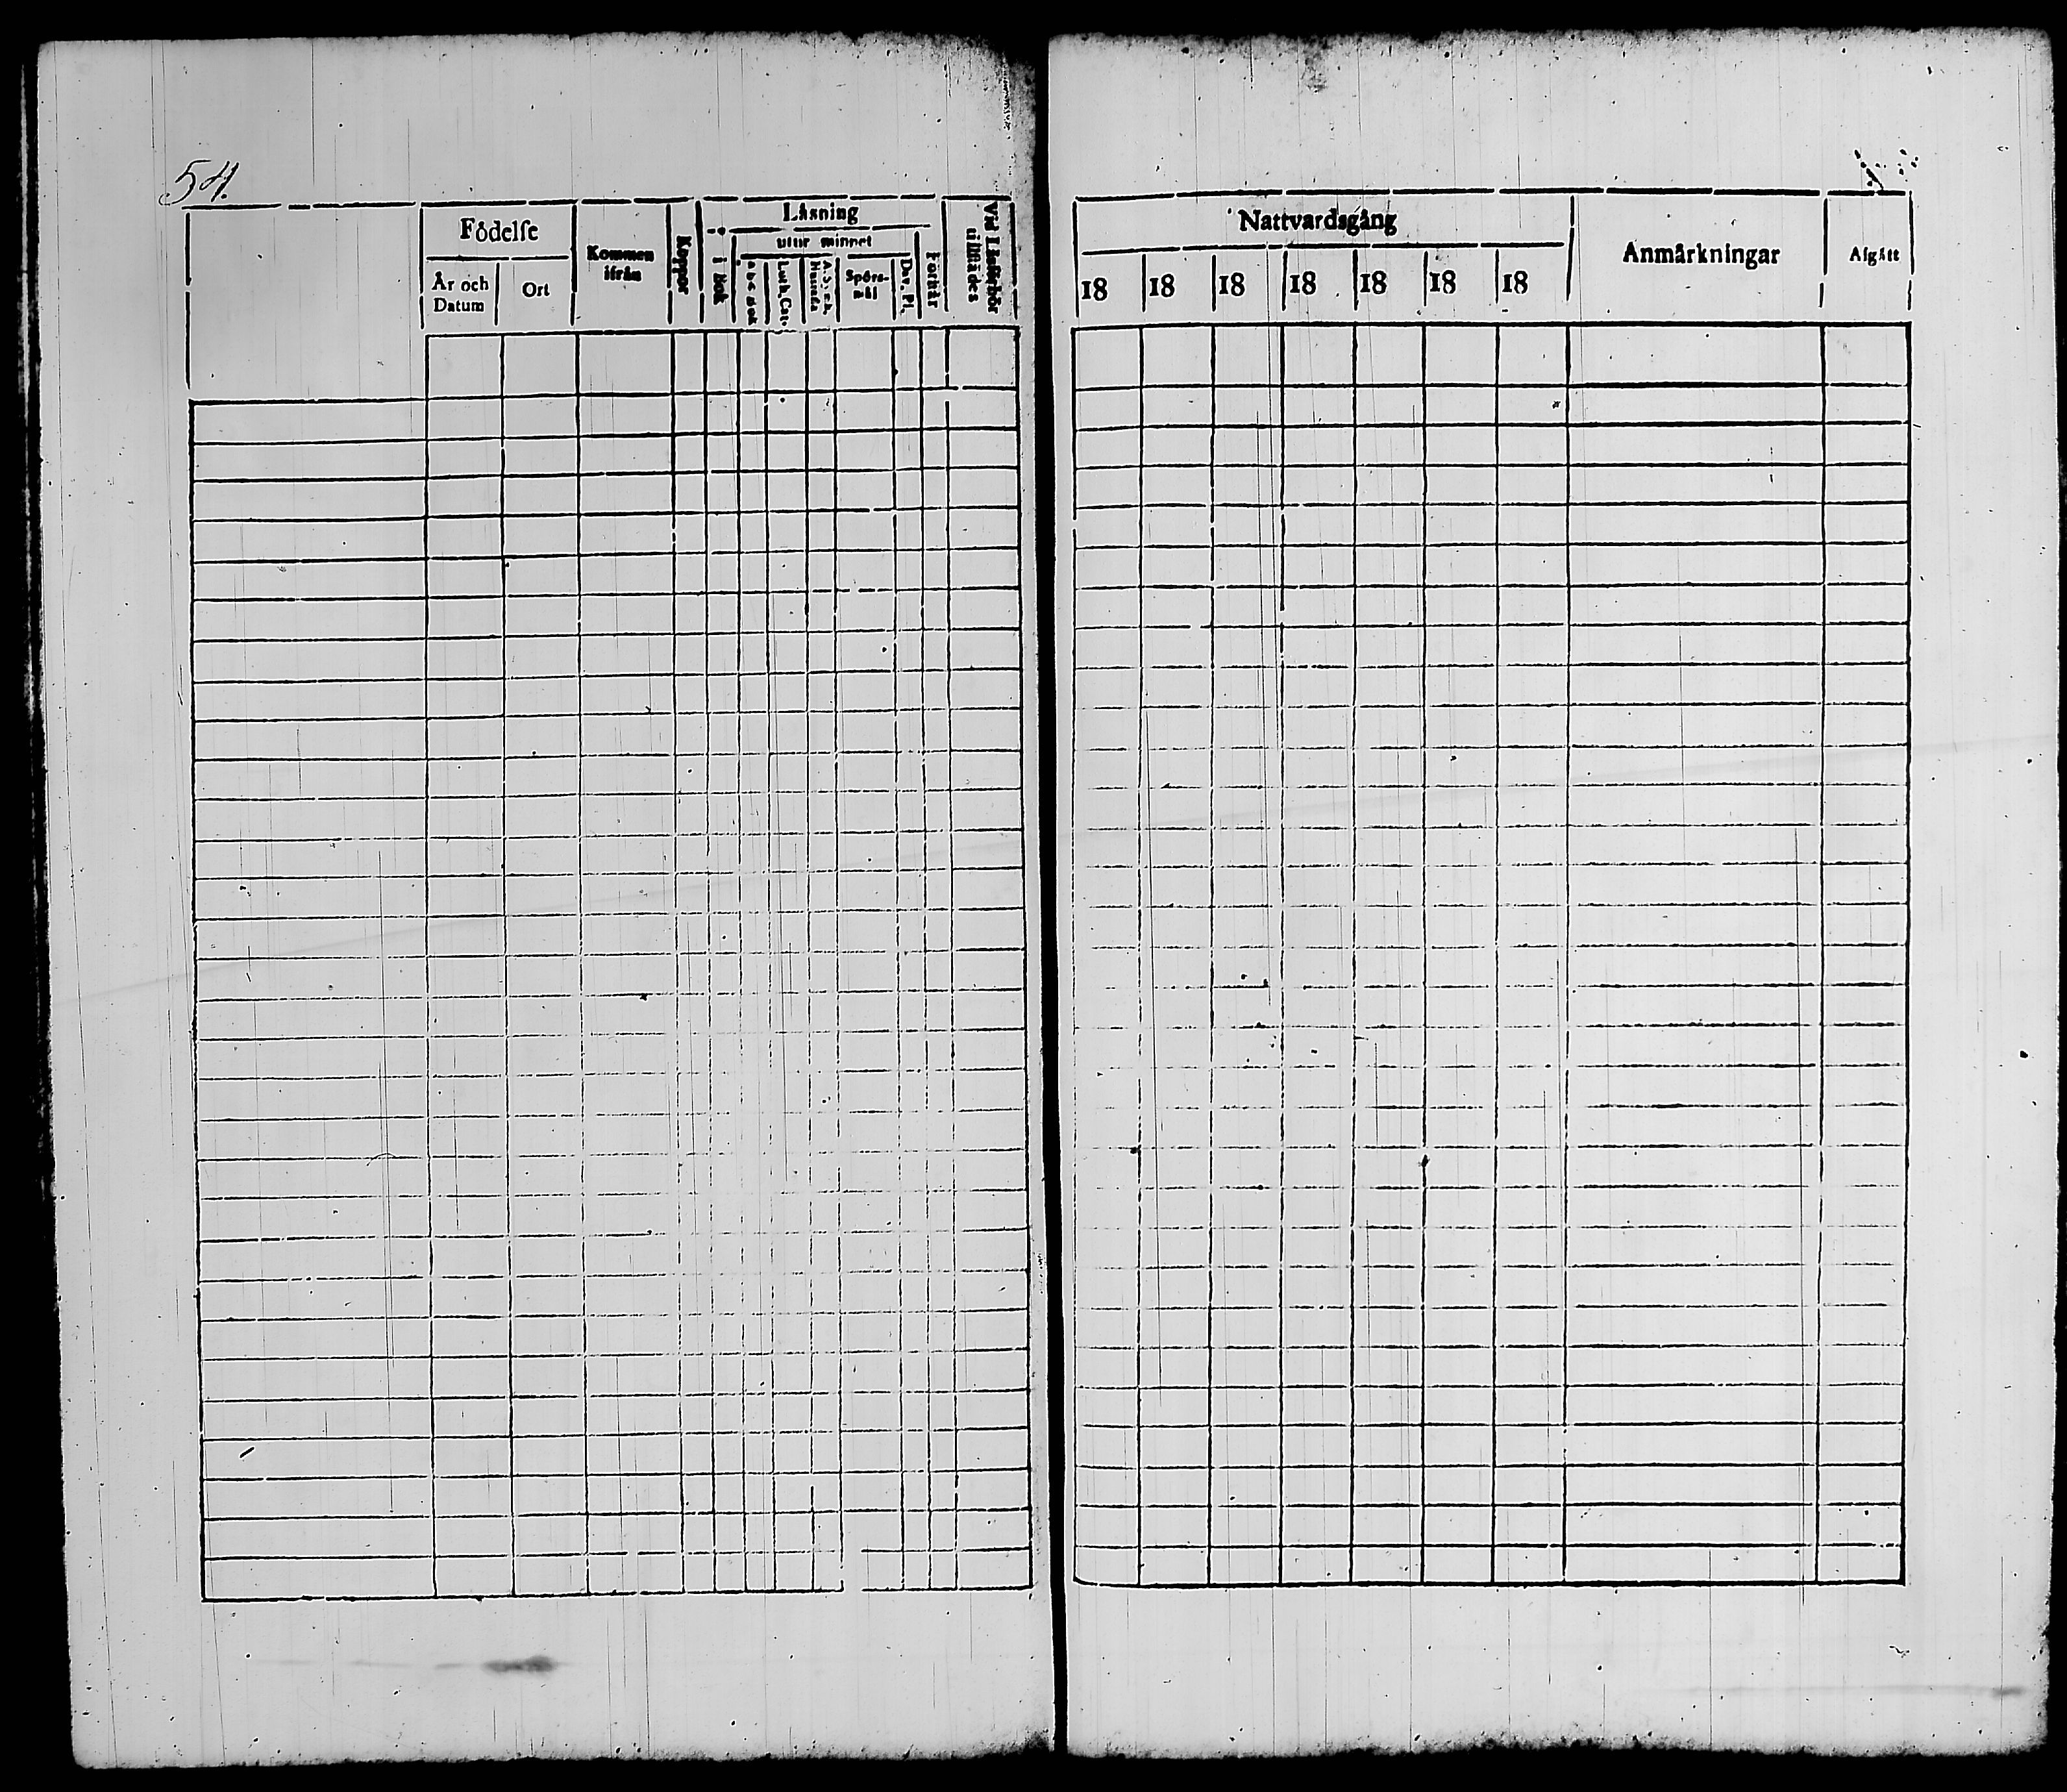 54.
Födelse
År och Datum
Ort
Kommen ifrån
Koppor
Läsning
i bok
utur minnet
a b c bok
Luth. Cat.
Hustafla
Spörs-mål
Dav. Ps.
Förhör
Vid Läsförhör
Nattvardsgång
18 18 18 18 18 18 18
Anmärkningar
Afgått